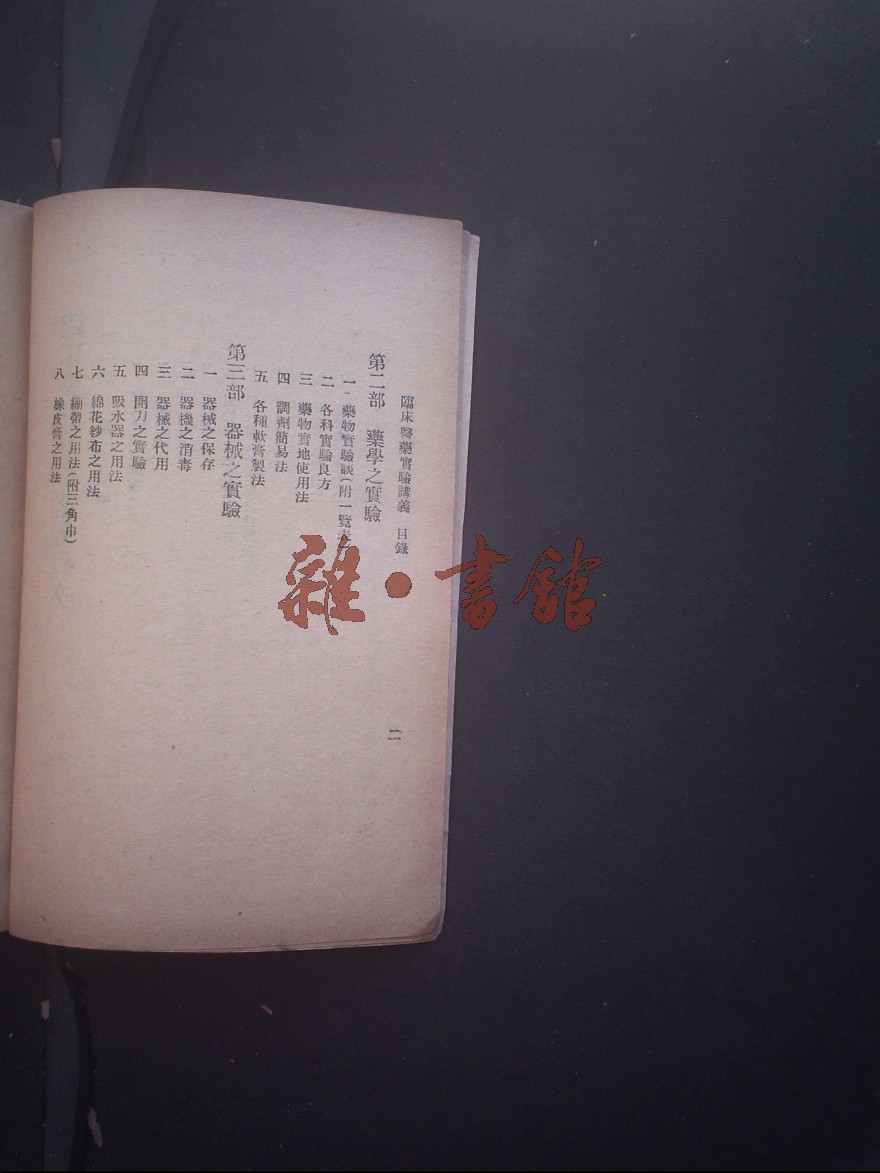 臨床醫藥實驗講義 目錄
第二部 藥學之實驗
一 藥物實驗談(附一覽表
二 各科實驗良方
三 藥物實地使用法
四 調劑簡易法
五 各種軟膏製法
第三部 器械之實驗
一 器械之保存
二 器機之消毒
三 器械之代用
四 開刀之實驗
五 吸水器之用法
六 綿花紗布之用法
七 繃帶之用法(附三角巾)
八 橡皮膏之用法
二
雜·書館